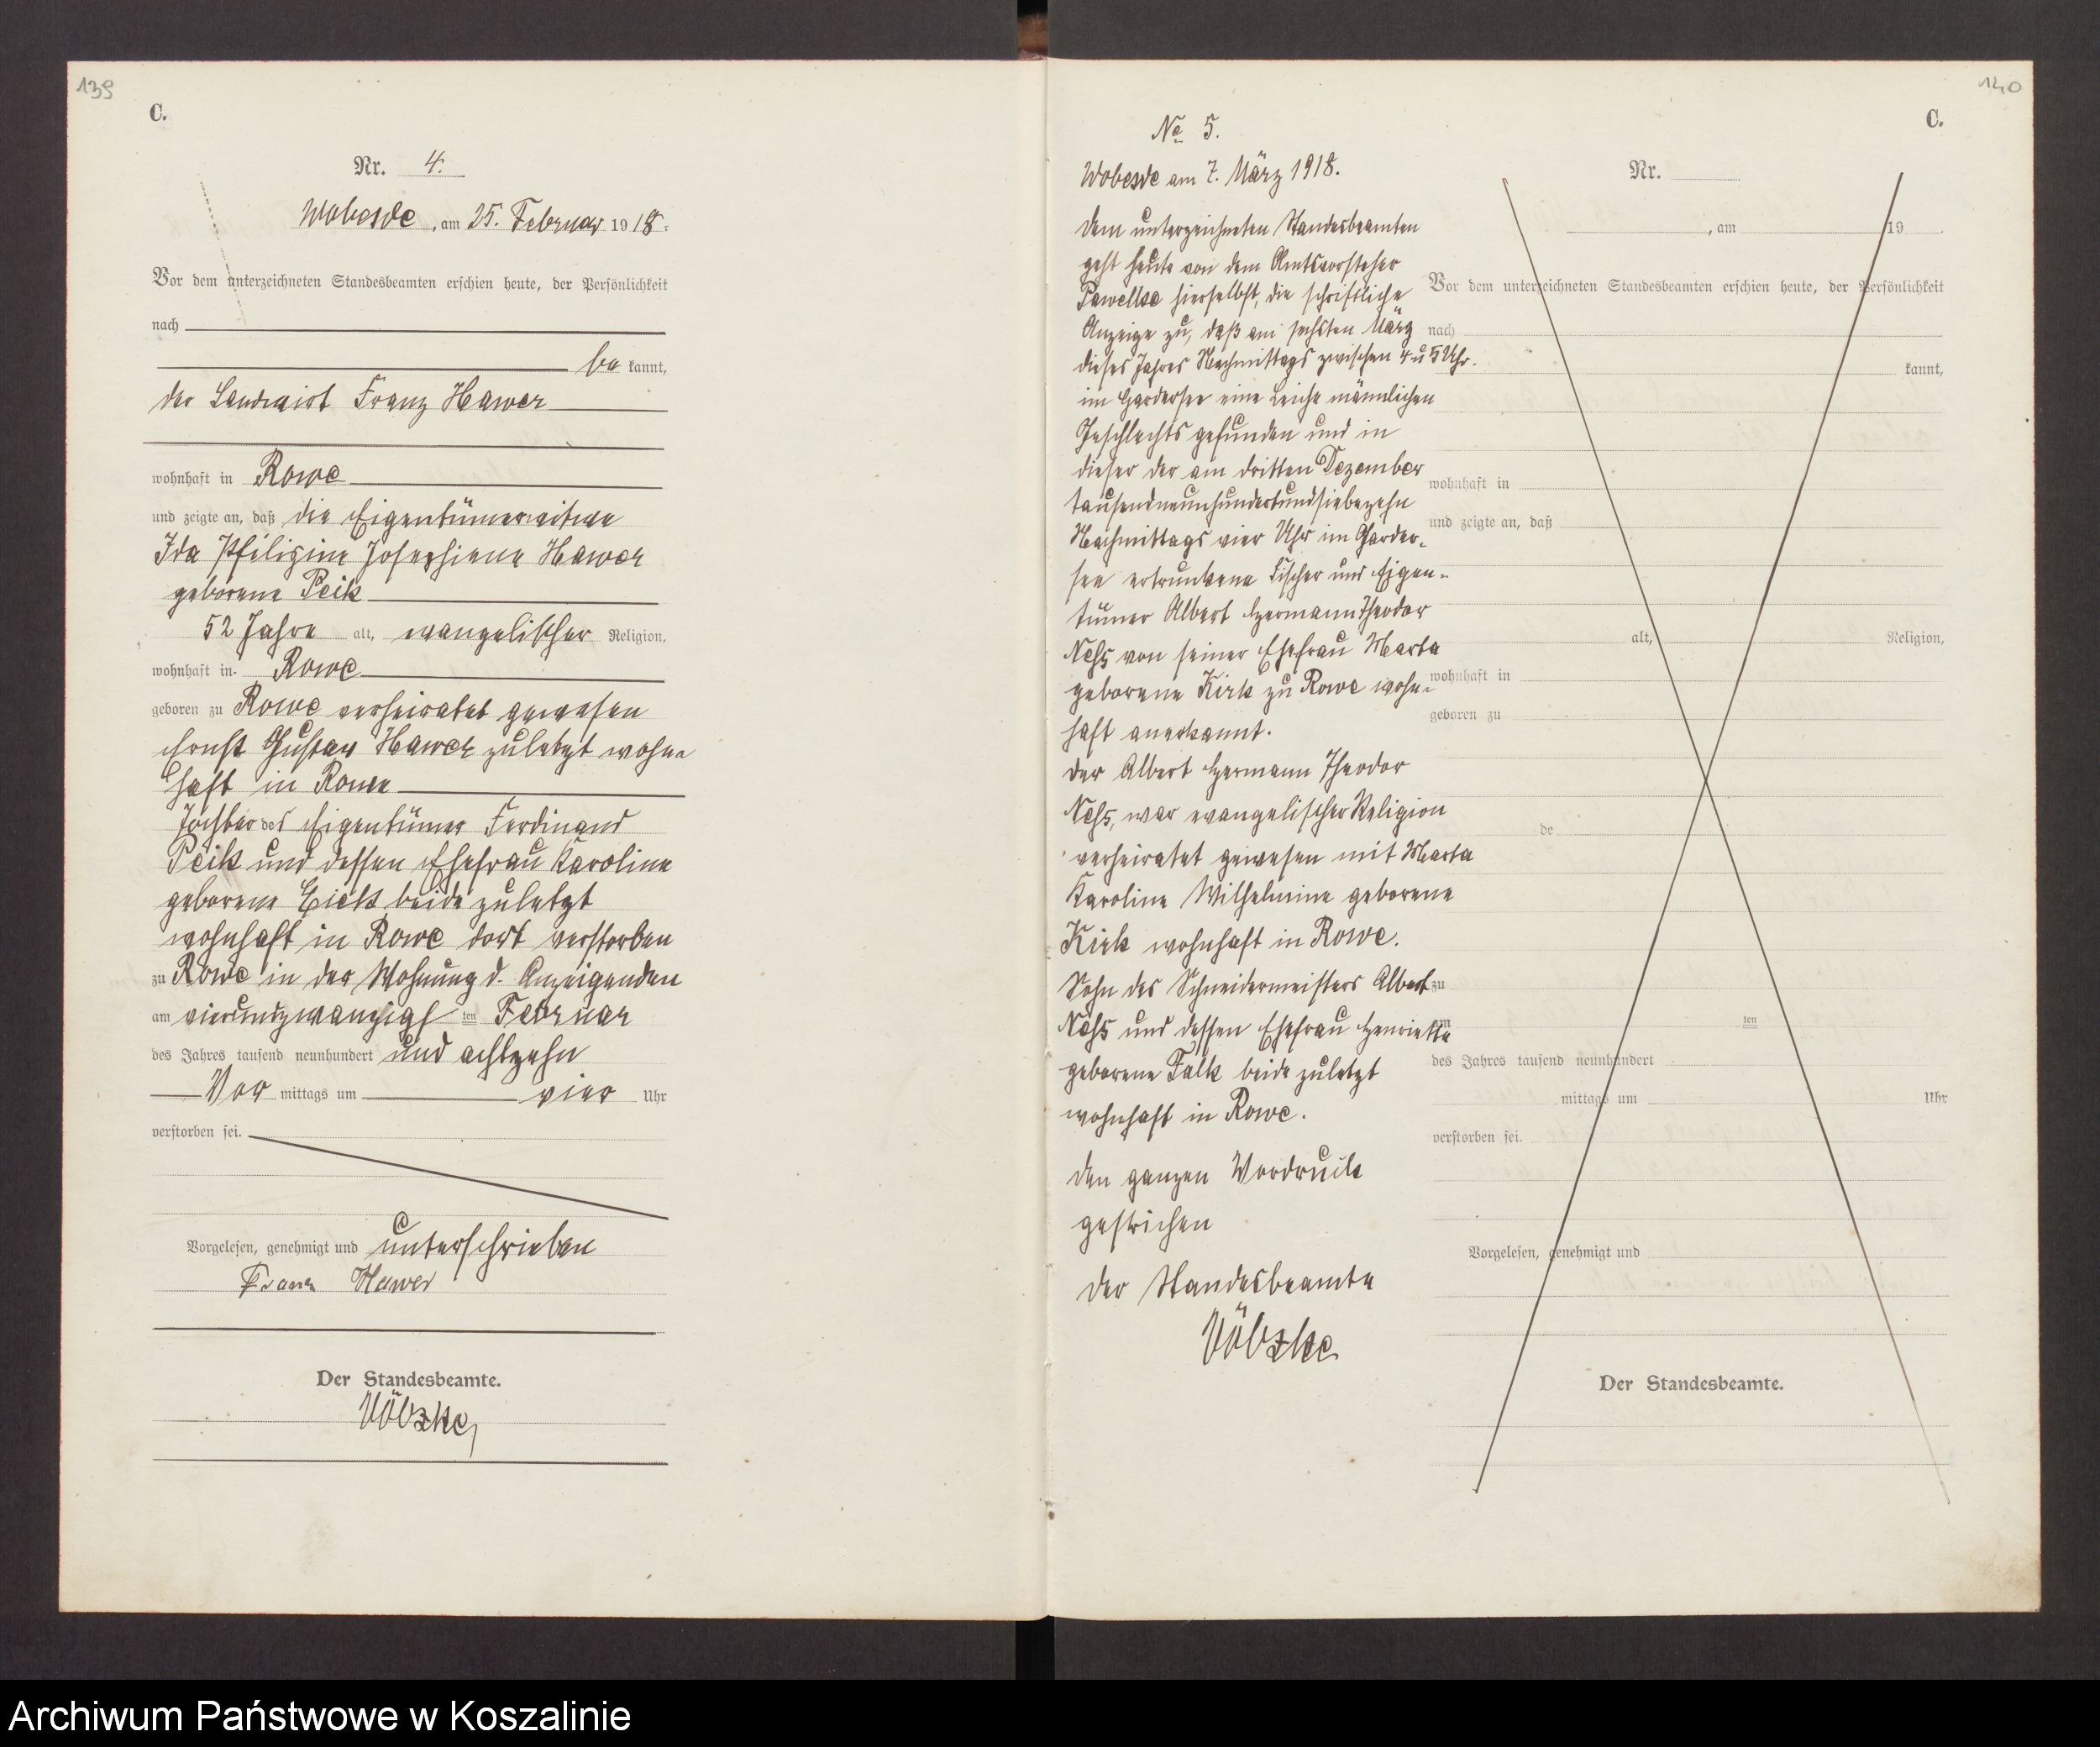 139
C.
Nr. 4.
Wobesde, am 25. Februar 1918.
Vor dem unterzeichneten Standesbeamten erschien heute, der Persönlichkeit
nach
be kannt,
der Landwirt Franz Hawer
wohnhaft in Rowe
und zeigte an, daß die Eigentümerwitwe
Ida Josephiene Hawer
geborene Peik
52 Jahre alt, evangelischer Religion,
wohnhaft in Rowe
geboren zu Rowe verheiratet gewesen
Ernst Gustav Hawer zuletzt wohn-
haft in Rowe
Tochter des Eigentümer Ferdinand
Peik und dessen Ehefrau Karoline
geborene beide zuletzt
wohnhaft in Rowe dort verstorben
zu Rowe in der Wohnung d. Anzeigenden
am vierundzwanzigsten Februar
des Jahres tausend neunhundert und achtzehn
Vor mittags um vier Uhr
verstorben sei.
Vorgelesen, genehmigt und unterschrieben
Franz Hawer
Der Standesbeamte.
Völzke
140
C.
No 5.
Wobesde am 7. März 1918.
Dem unterzeichneten Standesbeamten
geht heute von dem Amtsvorsteher
Pawelke hierselbst, die schriftliche
Anzeige zu, daß am sechsten März
dieses Jahres Nachmittags zwischen 4 u 5 Uhr.
im Gardersee eine Leiche männlichen
Geschlechts gefunden und in
dieser der am dritten Dezember
tausendneunhundertundsiebezehn
Nachmittags vier Uhr im Garder-
see ertrunkene Fischer und Eigen-
tümer Albert Hermann Theodor
Nehs von seiner Ehefrau Marta
geborene Kirk zu Rowe wohn-
haft anerkannt.
Der Albert Hermann Theodor
Nehs, war evangelischer Religion
verheiratet gewesen mit Marta
Karoline Wilhelmine geborene
Kirk wohnhaft in Rowe.
Sohn des Schneidermeisters Albert
Nehs und dessen Ehefrau Henriette
geborene Falk beide zuletzt
wohnhaft in Rowe.
Den ganzen Vordruck
gestrichen
Der Standesbeamte
Völzke
Nr.
, am 19 .
Vor dem unterzeichneten Standesbeamten erschien heute, der Persönlichkeit
nach
kannt,
wohnhaft in
und zeigte an, daß
alt, Religion,
wohnhaft in
geboren zu
de
zu
am ten
des Jahres tausend neunhundert
mittags um Uhr
verstorben sei.
Vorgelesen, genehmigt und
Der Standesbeamte.
Archiwum Państwowe w Koszalinie